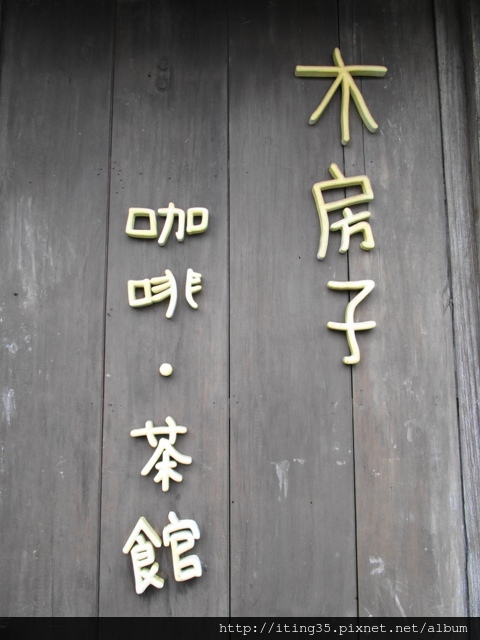 木房子
咖啡·茶館
http://iting35.pixnet.net/album